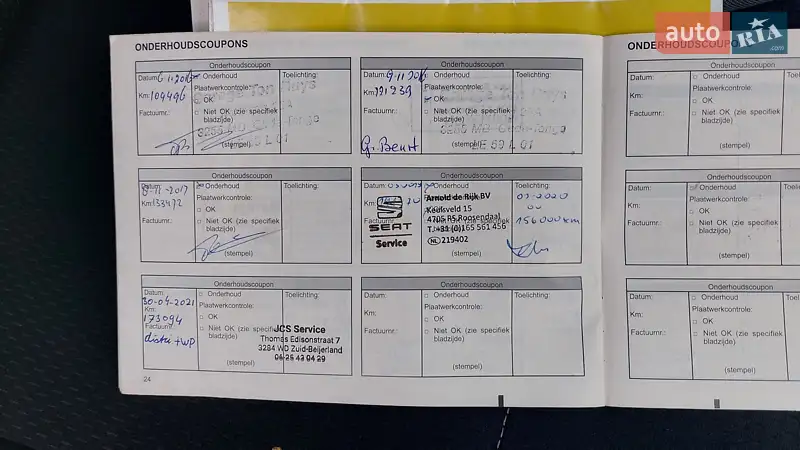 auto RIA.com
ONDERHOUDSCOUPONS
Onderhoudscoupon
Datum: 6-1-2016
□ Onderhoud
Toelichting:
Km: 104496
Plaatwerkcontrole:
□ OK
Factuurnr.:
□ Niet OK (zie specifiek bladzijde)
(stempel)
Onderhoudscoupon
Datum: 9-11-2016
□ Onderhoud
Toelichting:
Km: 121239
Plaatwerkcontrole:
□ OK
Factuurnr.:
□ Niet OK (zie specifiek bladzijde)
G. Beurt
(stempel)
Onderhoudscoupon
Datum:
8-11-2017
□ Onderhoud
Toelichting:
Km: 133472
Plaatwerkcontrole:
□ OK
Factuurnr.:
□ Niet OK (zie specifiek bladzijde)
(stempel)
Onderhoudscoupon
Toelichting:
SEAT
Service
Arnold de Rijk BV
Keijsveld 15
4705 RS Roosendaal
T. +31 (0)165 561 456
NL 219402
07-2020
156000 km
(stempel)
Onderhoudscoupon
Datum:
30-04-2021
□ Onderhoud
Toelichting:
Km:
173094
Plaatwerkcontrole:
□ OK
Factuurnr.:
□ Niet OK (zie specifiek bladzijde)
distri + WP
JCS Service
Thomas Edisonstraat 7
3284 WD Zuid-Beijerland
06 25 43 04 29
(stempel)
Onderhoudscoupon
Datum:
□ Onderhoud
Toelichting:
Km:
Plaatwerkcontrole:
□ OK
Factuurnr.:
□ Niet OK (zie specifiek bladzijde)
(stempel)
24
ONDERHOUDSCOUPON
Onderhoudscoupon
Datum:
□ Onderhoud
Km:
Plaatwerkcontrole:
□ OK
Factuurnr.:
□ Niet OK (zie specifiek bladzijde)
(stempel)
Onderhoudscoupon
Datum:
Onderhoud
Km:
Plaatwerkcontrole:
□ OK
Factuurnr.:
□ Niet OK (zie specifiek bladzijde)
(stempel)
Onderhoudscoupon
Datum:
□ Onderhoud
Km:
Plaatwerkcontrole:
□ OK
Factuurnr.:
□ Niet OK (zie specifiek bladzijde)
(stempel)